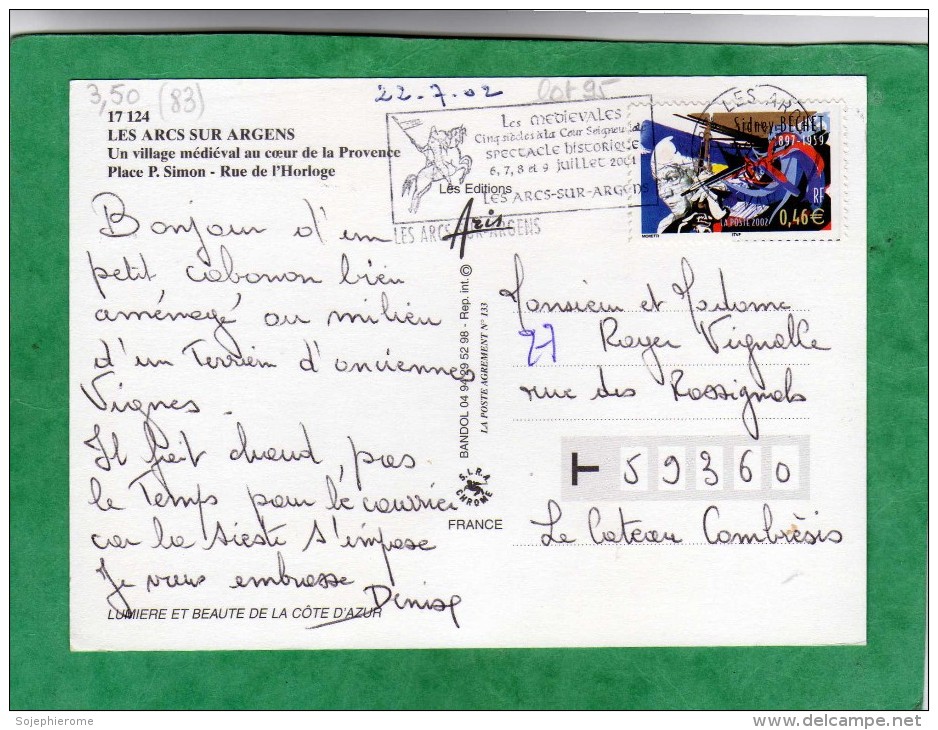 3,50 (83)
22.7.02
lot 95
17 124
LES ARCS SUR ARGENS
Un village médiéval au cœur de la Provence
Place P. Simon - Rue de l'Horloge
Les MEDIEVALES
Cinq siècles à la Cour Seigneuriale
SPECTACLE historique
6, 7, 8 et 9 juillet 2001
LES ARCS-SUR-ARGENS
LES ARCS-SUR-ARGENS
LES ARC
Sidney BECHET
1897-1959
RF
LA POSTE 2002
0,46€
MORETTI
ITVF
Les Editions
Aris
BANDOL 04 94 29 52 98 - Rep. int. ©
LA POSTE AGREMENT N° 133
S.L.R.A
CHROME
FRANCE
Bonjour d'un
petit cabanon bien
aménagé au milieu
d'un Terrain d'anciennes
Vignes.
Il fait chaud, pas
le Temps pour le courrier
car la sieste s'impose
Je vous embrasse
Denise
LUMIERE ET BEAUTE DE LA CÔTE D'AZUR
Monsieur et Madame
27 Roger Vignolle
rue des Rossignols
59360
Le Cateau Cambrèsis
Sojephierome
www.delcampe.net